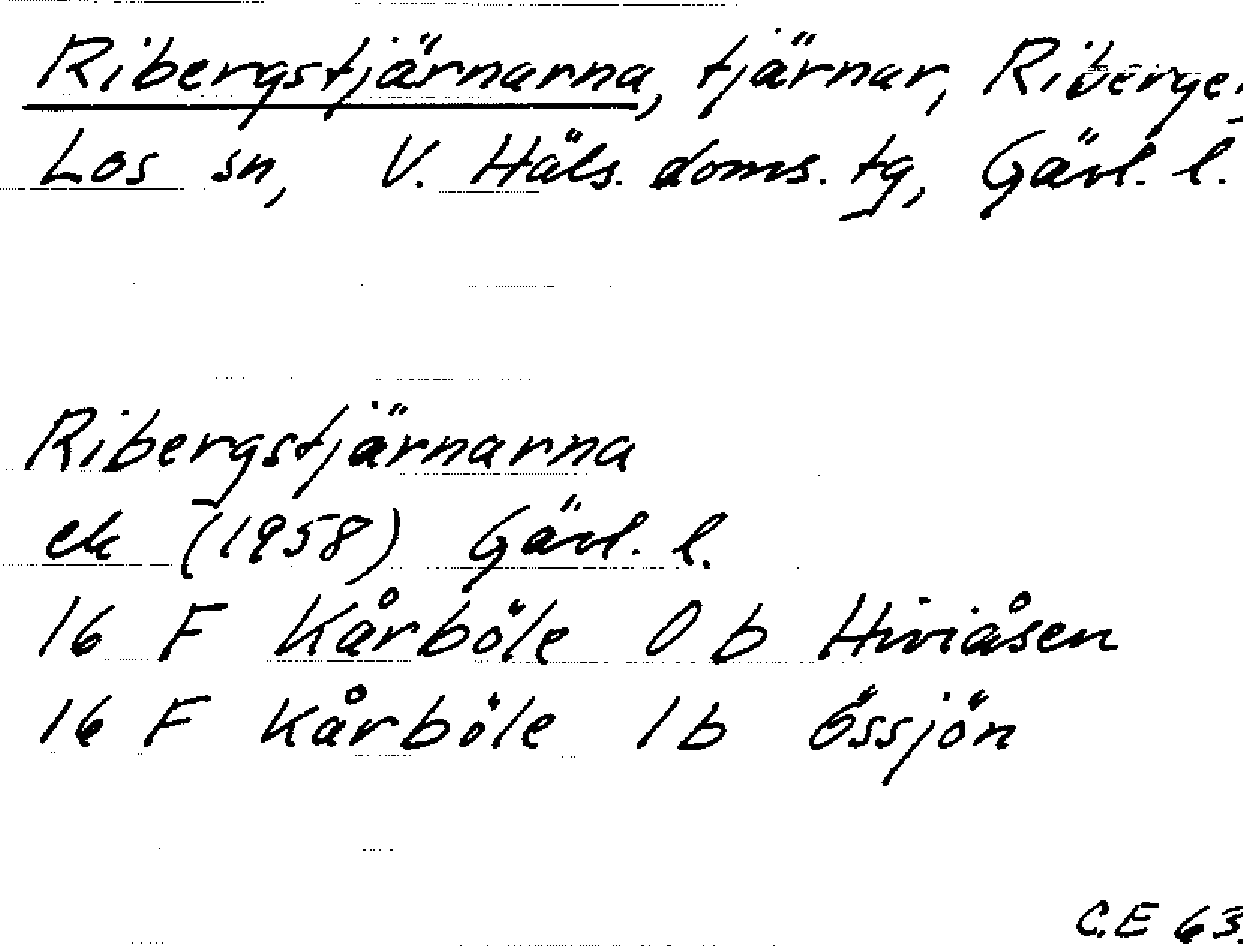 Ribergstjärnarna, tjärnar, Riberget
Los sn, V. Häls. doms. tg, Gävl. l.
Ribergstjärnarna
ek (1958) Gävl. l.
16 F Kårböle 0 b Hiviåsen
16 F Kårböle 1 b Össjön
C.E 63.